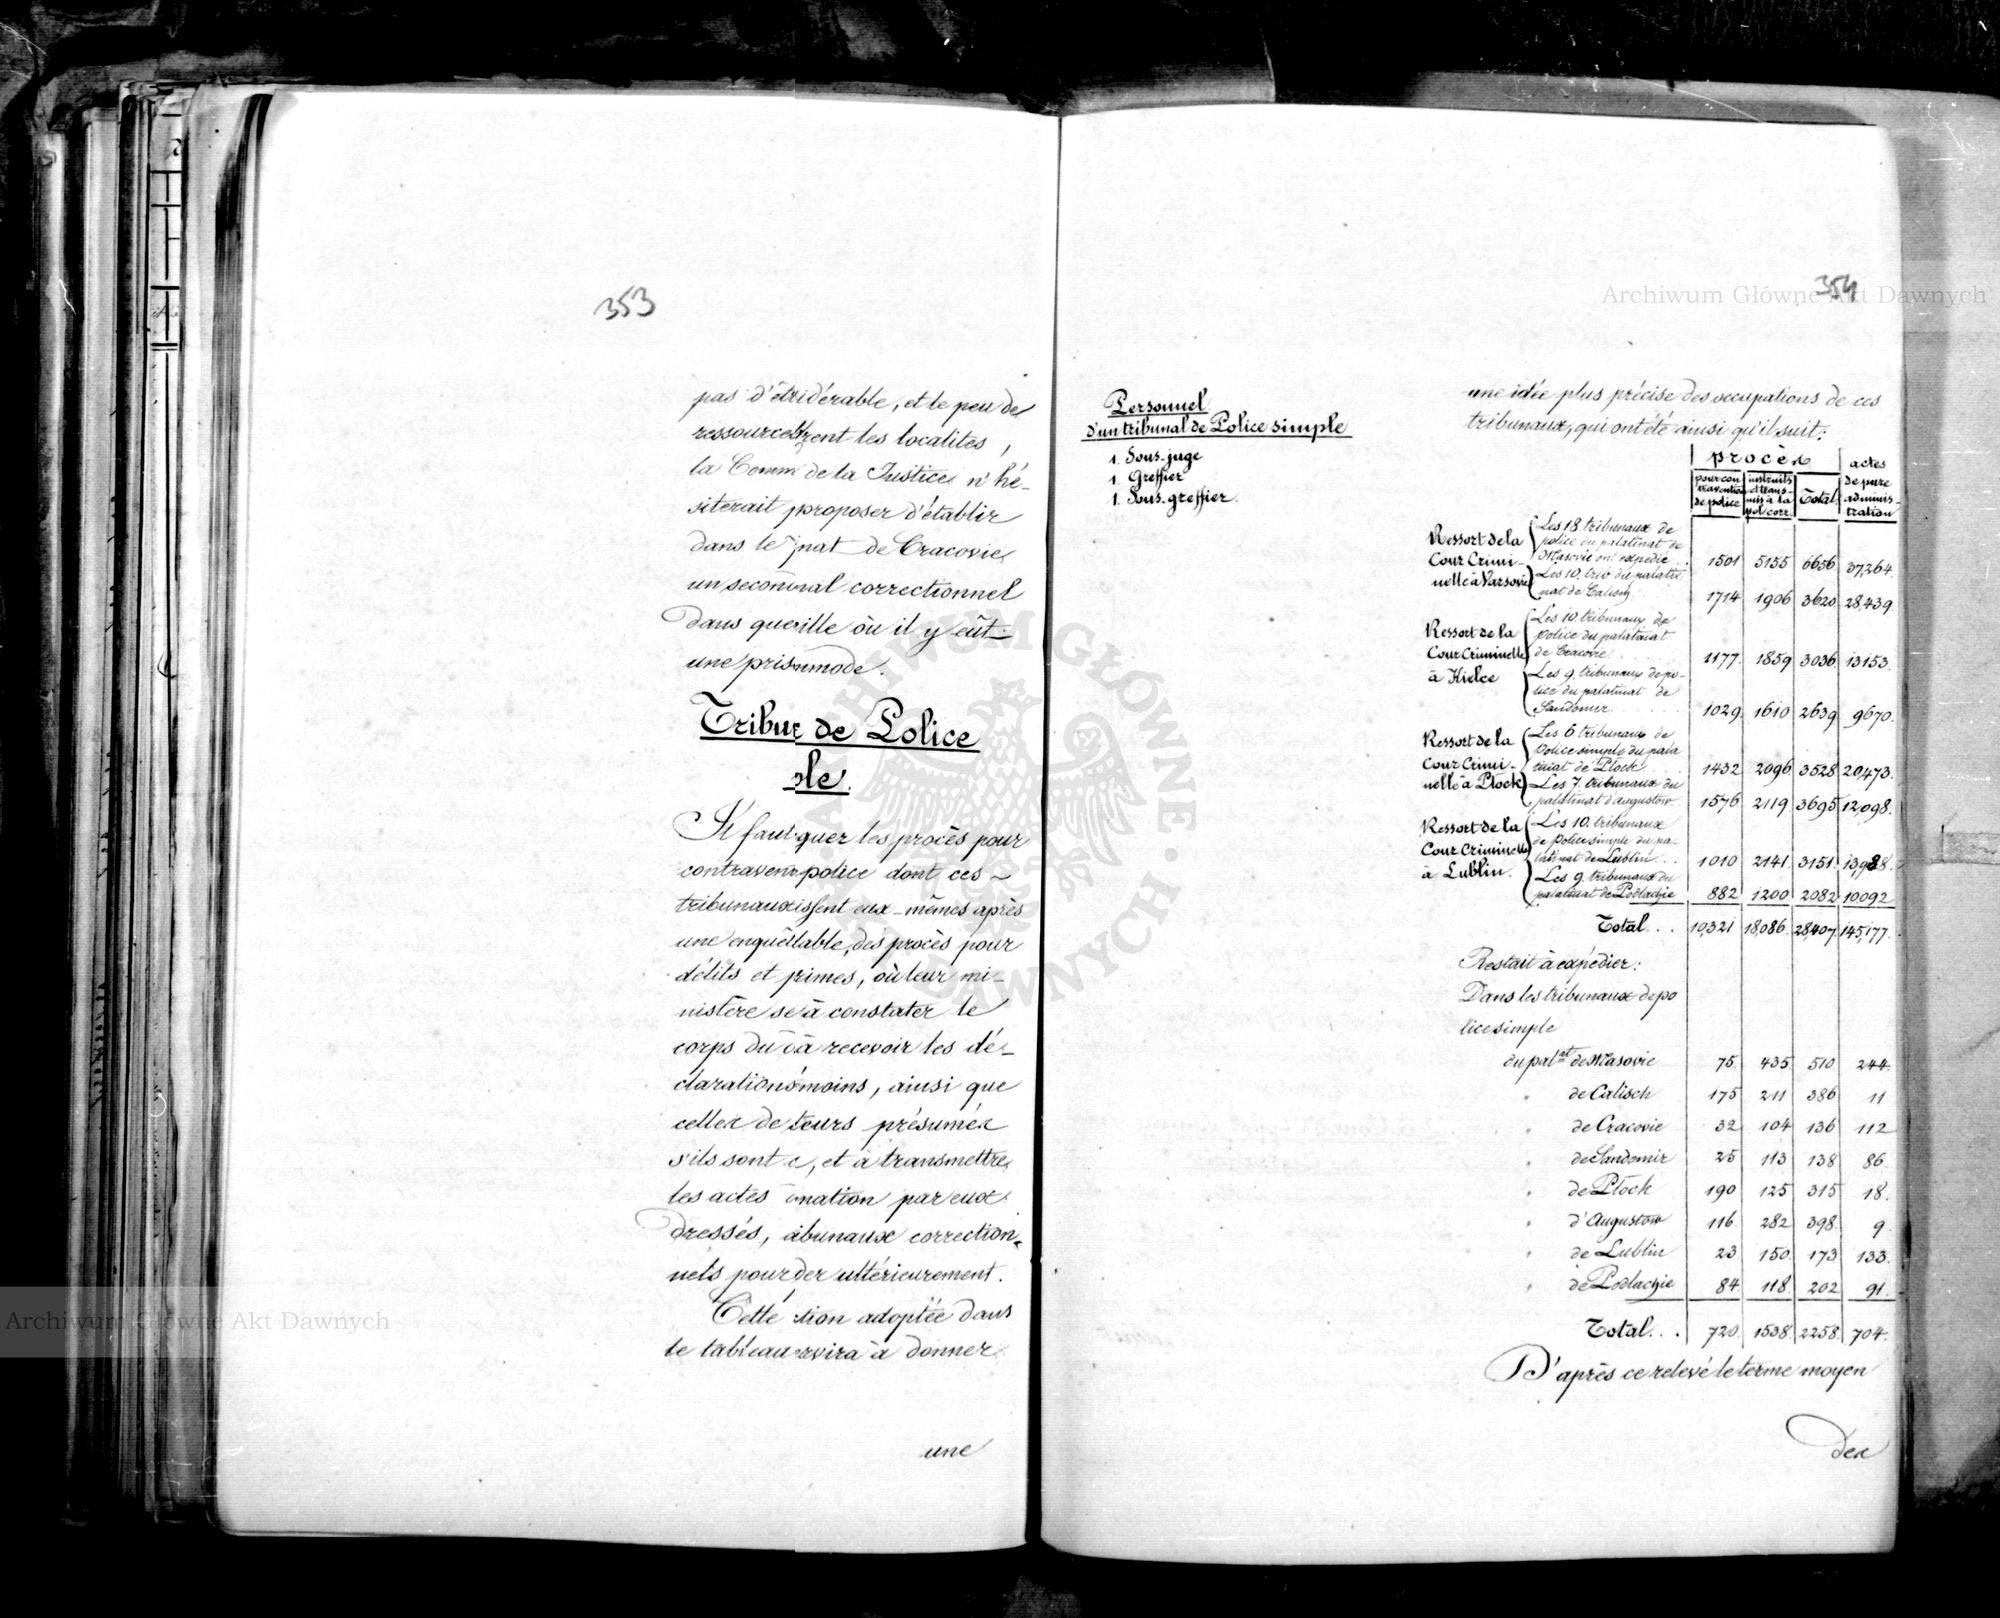 353
pas d'étridérable, et le peu de
ressourcesfrent les localités,
la Comm de la Justice n'hé-
siterait proposer d'établir
dans le nat de Cracovie
un seconnal correctionnel
dans queville où il y eût
une prismmode.
Tribur de Police
le.
Il faut guer les procès pour
contraven police dont ces
tribunauxissent eux-mêmes après
une enquêtlable, des procès pour
délits et primes, où leur mi-
nistère se à constater le
corps du dà recevoir les dé-
clarations moins, ainsi que
celles de teurs présumés
s'ils sont c, et à transmettre
les actes mation par eux
dressés, abunaux correction-
nels pour der ultérieurement.
Cette tion adoptée dans
le tableau rvira à donner
une
354
Personnel
d'un tribunal de Police simple
1. Sous-juge
1. Greffier
1. Sous-greffier.
une idée plus précise des occupations de ces
tribunaux, qui ont été ainsi qu'il suit:
procès actes
pour con instruits de pure
travention et trans- Total adminis-
de police mis à la pol corr. tration
Ressort de la Cour Criminelle à Varsovie
Les 18 tribunaux de
police du palatinat de
Masovie ont expédié 1501 5155 6656 37,264.
Les 10. trib du palati
nat de Calisch 1714 1906 3620 28,439.
Ressort de la Cour Criminelle à Kielce
Les 10. tribunaux de
police du palatinat
de Cracovie 1177. 1859 3036. 13153.
Les 9. tribunaux de po-
lice du palatinat de
Sandomir 1029. 1610 2639 9670.
Ressort de la Cour Criminelle à Plock
Les 6 tribunaux de
Police simple du pala
tinat de Plock 1432 2096 3528 20,473.
Les 7. tribunaux du
palatinat d'augustow 1576 2119 3695 12,098.
Ressort de la Cour Criminelle à Lublin.
Les 10. tribunaux
de police simple du pa-
latinat de Lublin 1010 2141. 3151. 13,988.
Les 9. tribunaux du
palatinat de Podlachie 882 1200 2082 10092
Total... 10,321 18,086. 28,407. 145,177.
Restait à expédier:
Dans les tribunaux de po
lice simple
du pal.at de Masovie 75. 435 510 244.
" de Calisch 175 211 386 11
" de Cracovie 32 104 136 112
" de Sandomir 25 113 138 86.
" de Plock 190 125 315 18.
" d'Augustow 116. 282 398. 9.
" de Lublin 23 150. 173 133.
" de Podlachie 84 118. 202 91.
Total... 720. 1538. 2258. 704.
D'après ce relevé le terme moyen
des
Archiwum Główne Akt Dawnych
Archiwum Główne Akt Dawnych
ARCHIWUM GŁÓWNE AKT DAWNYCH